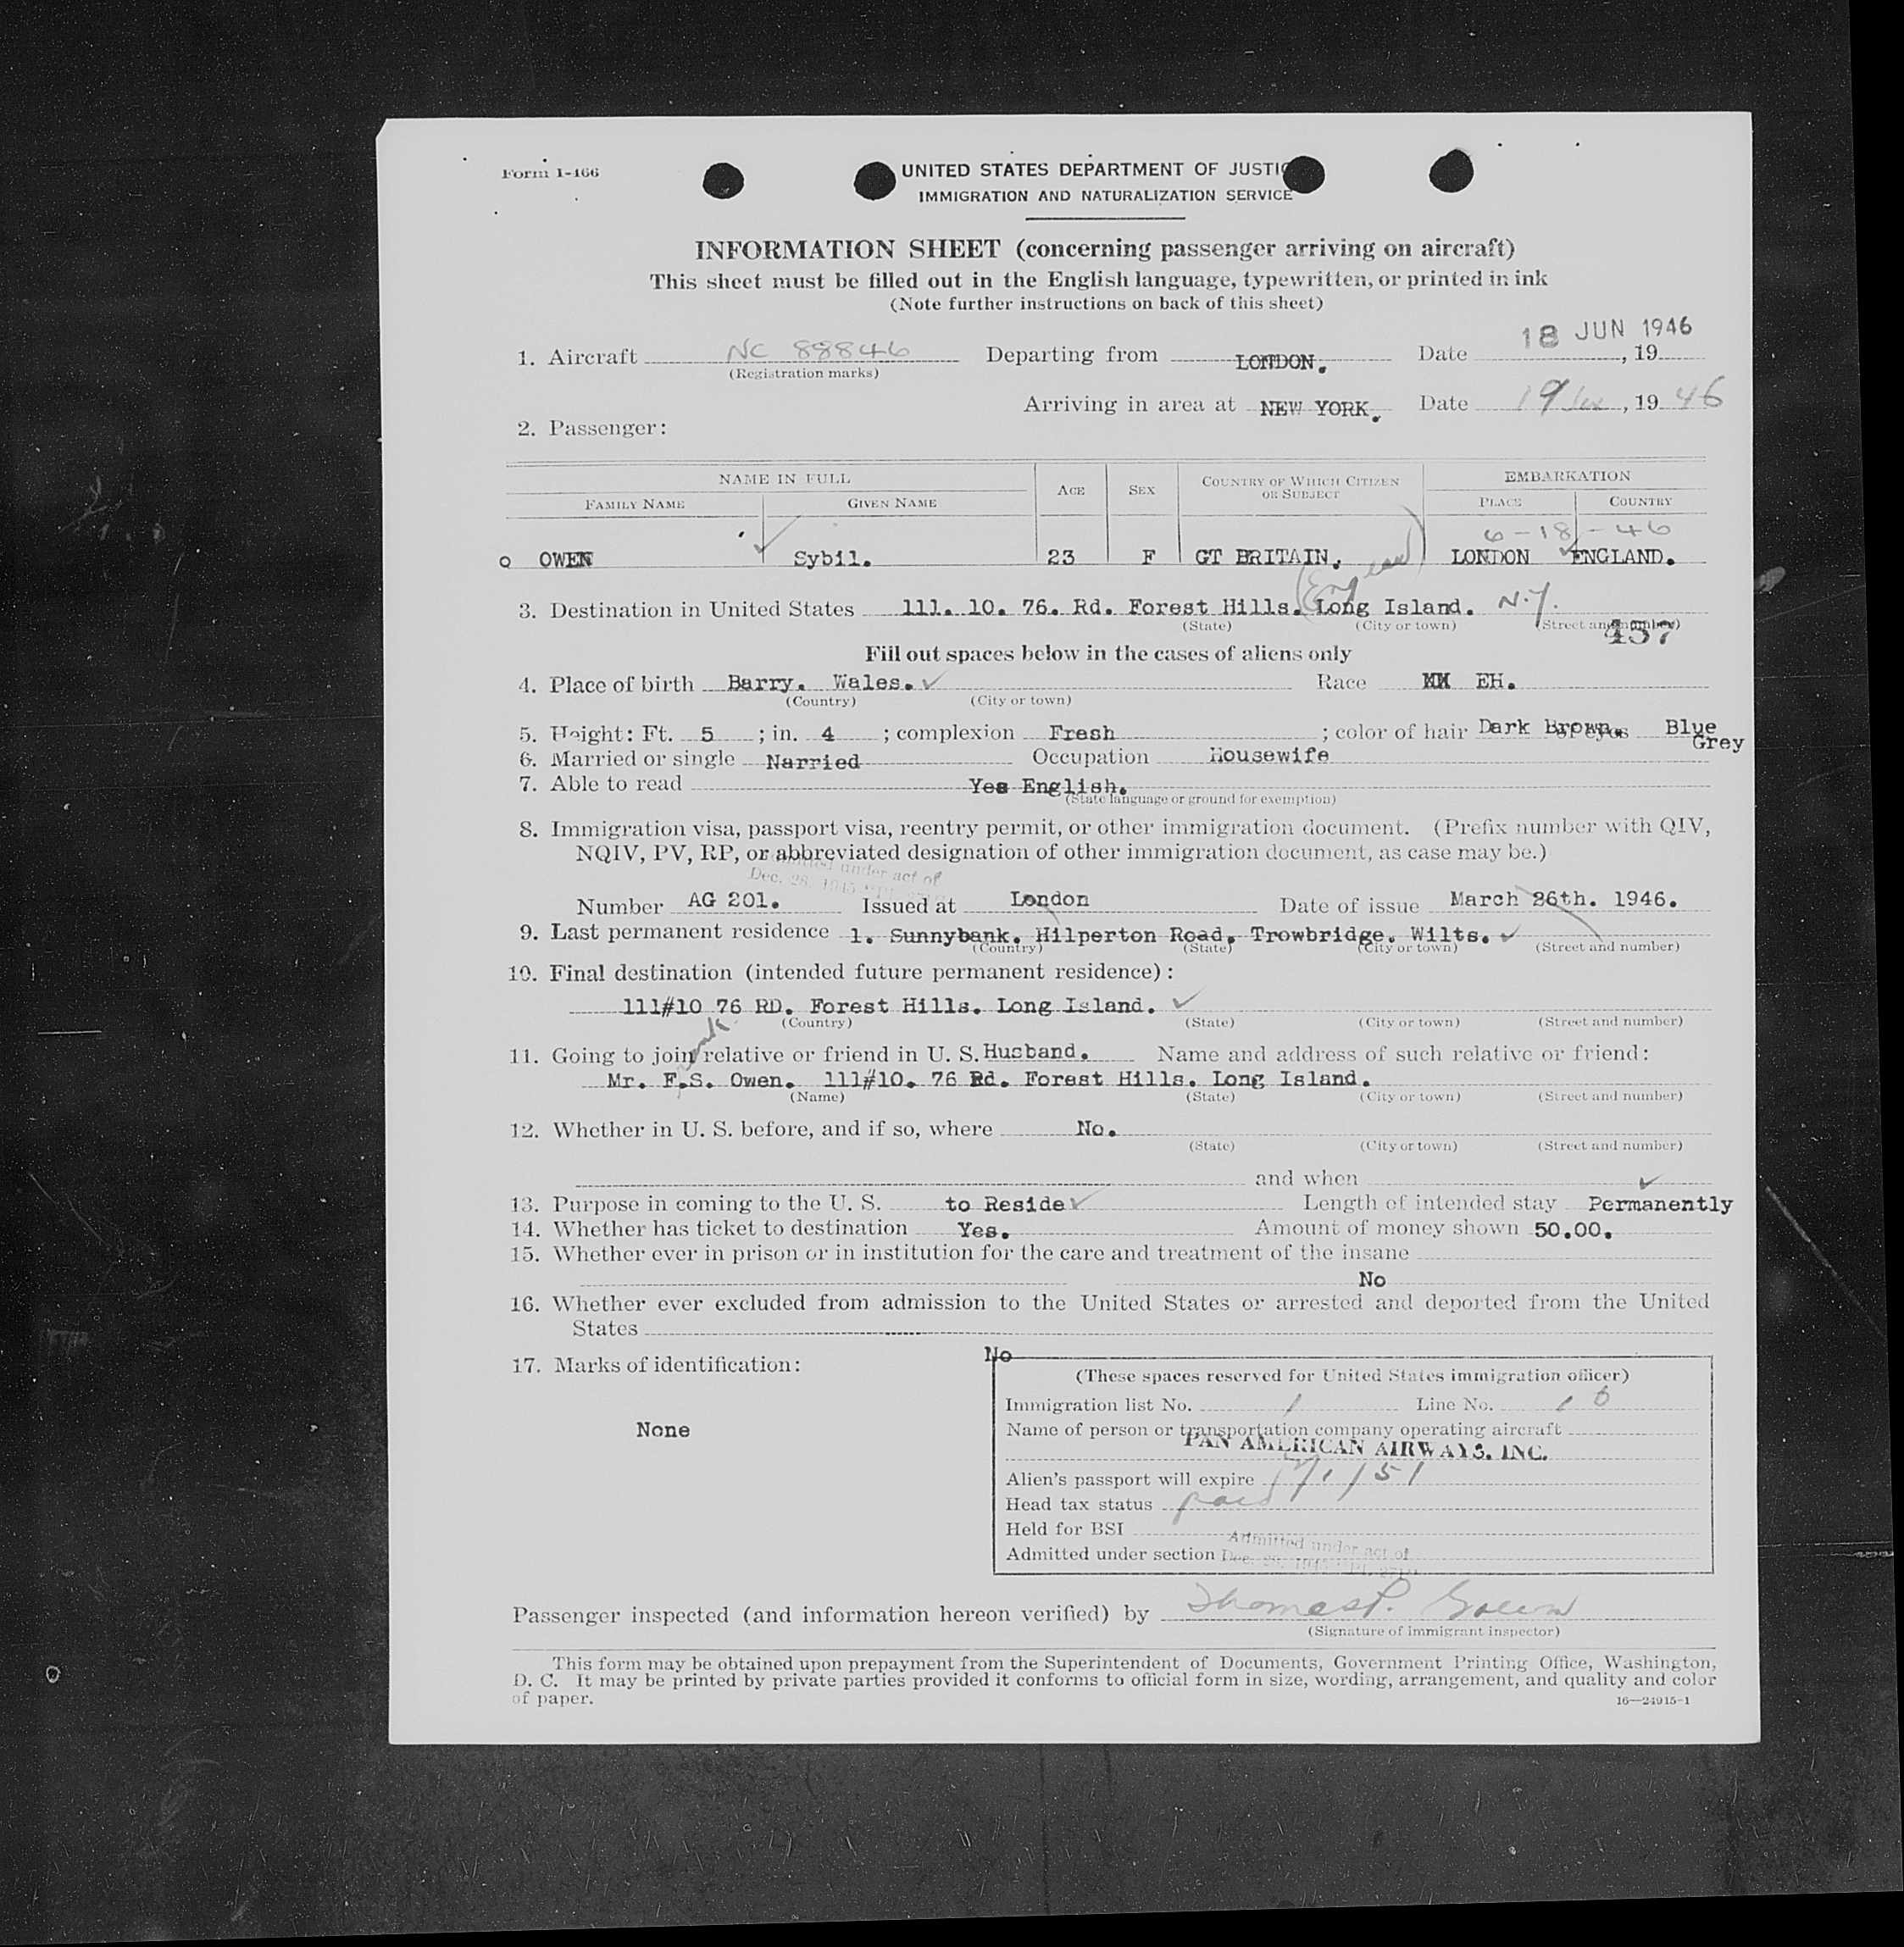 Form I-466
UNITED STATES DEPARTMENT OF JUSTIC
IMMIGRATION AND NATURALIZATION SERVICE
INFORMATION SHEET (concerning passenger arriving on aircraft)
This sheet must be filled out in the English language, typewritten, or printed in ink
(Note further instructions on back of this sheet)
18 JUN 1946
1. Aircraft NC 88846 Departing from LONDON. Date , 19
(Registration marks)
Arriving in area at NEW YORK. Date 19 , 19 46
2. Passenger:
NAME IN FULL AGE SEX COUNTRY OF WHICH CITIZEN OR SUBJECT EMBARKATION
FAMILY NAME GIVEN NAME PLACE COUNTRY
6-18-46
OWEN Sybil. 23 F GT BRITAIN. LONDON ENGLAND.
(England)
3. Destination in United States 111. 10. 76. Rd. Forest Hills. Long Island. N.Y.
(State) (City or town) (Street and number)
457
Fill out spaces below in the cases of aliens only
4. Place of birth Barry. Wales. Race EH.
(Country) (City or town)
5. Height: Ft. 5 ; in. 4 ; complexion Fresh ; color of hair Dark Brown. of eyes Blue Grey
6. Married or single Narried Occupation Housewife
7. Able to read Yes English.
(State language or ground for exemption)
8. Immigration visa, passport visa, reentry permit, or other immigration document. (Prefix number with QIV,
NQIV, PV, RP, or abbreviated designation of other immigration document, as case may be.)
Admitted under act of
Dec. 28, 1945
Number AG 201. Issued at London Date of issue March 26th. 1946.
9. Last permanent residence 1. Sunnybank. Hilperton Road. Trowbridge. Wilts.
(Country) (State) (City or town) (Street and number)
10. Final destination (intended future permanent residence):
111#10 76 RD. Forest Hills. Long Island.
(Country) (State) (City or town) (Street and number)
11. Going to join relative or friend in U. S. Husband. Name and address of such relative or friend:
Mr. F.S. Owen. 111#10. 76 Rd. Forest Hills. Long Island.
(Name) (State) (City or town) (Street and number)
12. Whether in U. S. before, and if so, where No.
(State) (City or town) (Street and number)
and when
13. Purpose in coming to the U. S. to Reside Length of intended stay Permanently
14. Whether has ticket to destination Yes. Amount of money shown 50.00.
15. Whether ever in prison or in institution for the care and treatment of the insane
No
16. Whether ever excluded from admission to the United States or arrested and deported from the United
States
No
17. Marks of identification:
None
(These spaces reserved for United States immigration officer)
Immigration list No. 1 Line No. 10
Name of person or transportation company operating aircraft
PAN AMERICAN AIRWAYS, INC.
Alien's passport will expire /51
Head tax status paid
Held for BSI
Admitted under section Admitted under act of
Dec. 28, 1945
Passenger inspected (and information hereon verified) by Thomas P.
(Signature of immigrant inspector)
This form may be obtained upon prepayment from the Superintendent of Documents, Government Printing Office, Washington,
D. C. It may be printed by private parties provided it conforms to official form in size, wording, arrangement, and quality and color
of paper.
16—24915-1